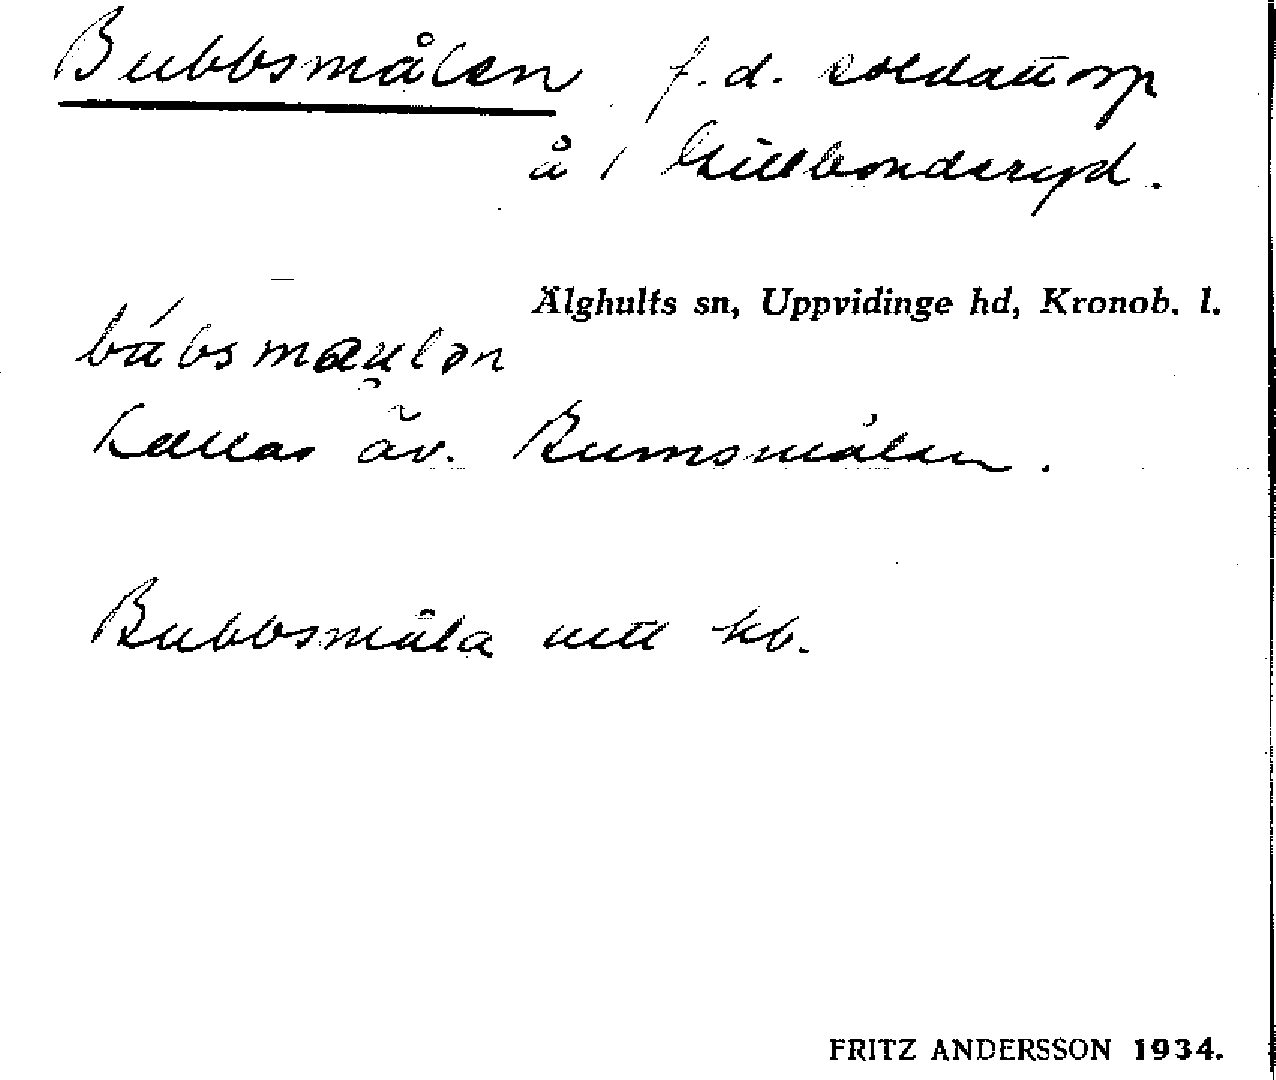 Bubbsmålen f.d. soldattorp
å 1 Lillbonderyd.
Älghults sn, Uppvidinge hd, Kronob. l.
kallas äv. Bumsmålen.
Bubbsmåla utt kb.
FRITZ ANDERSSON 1934.